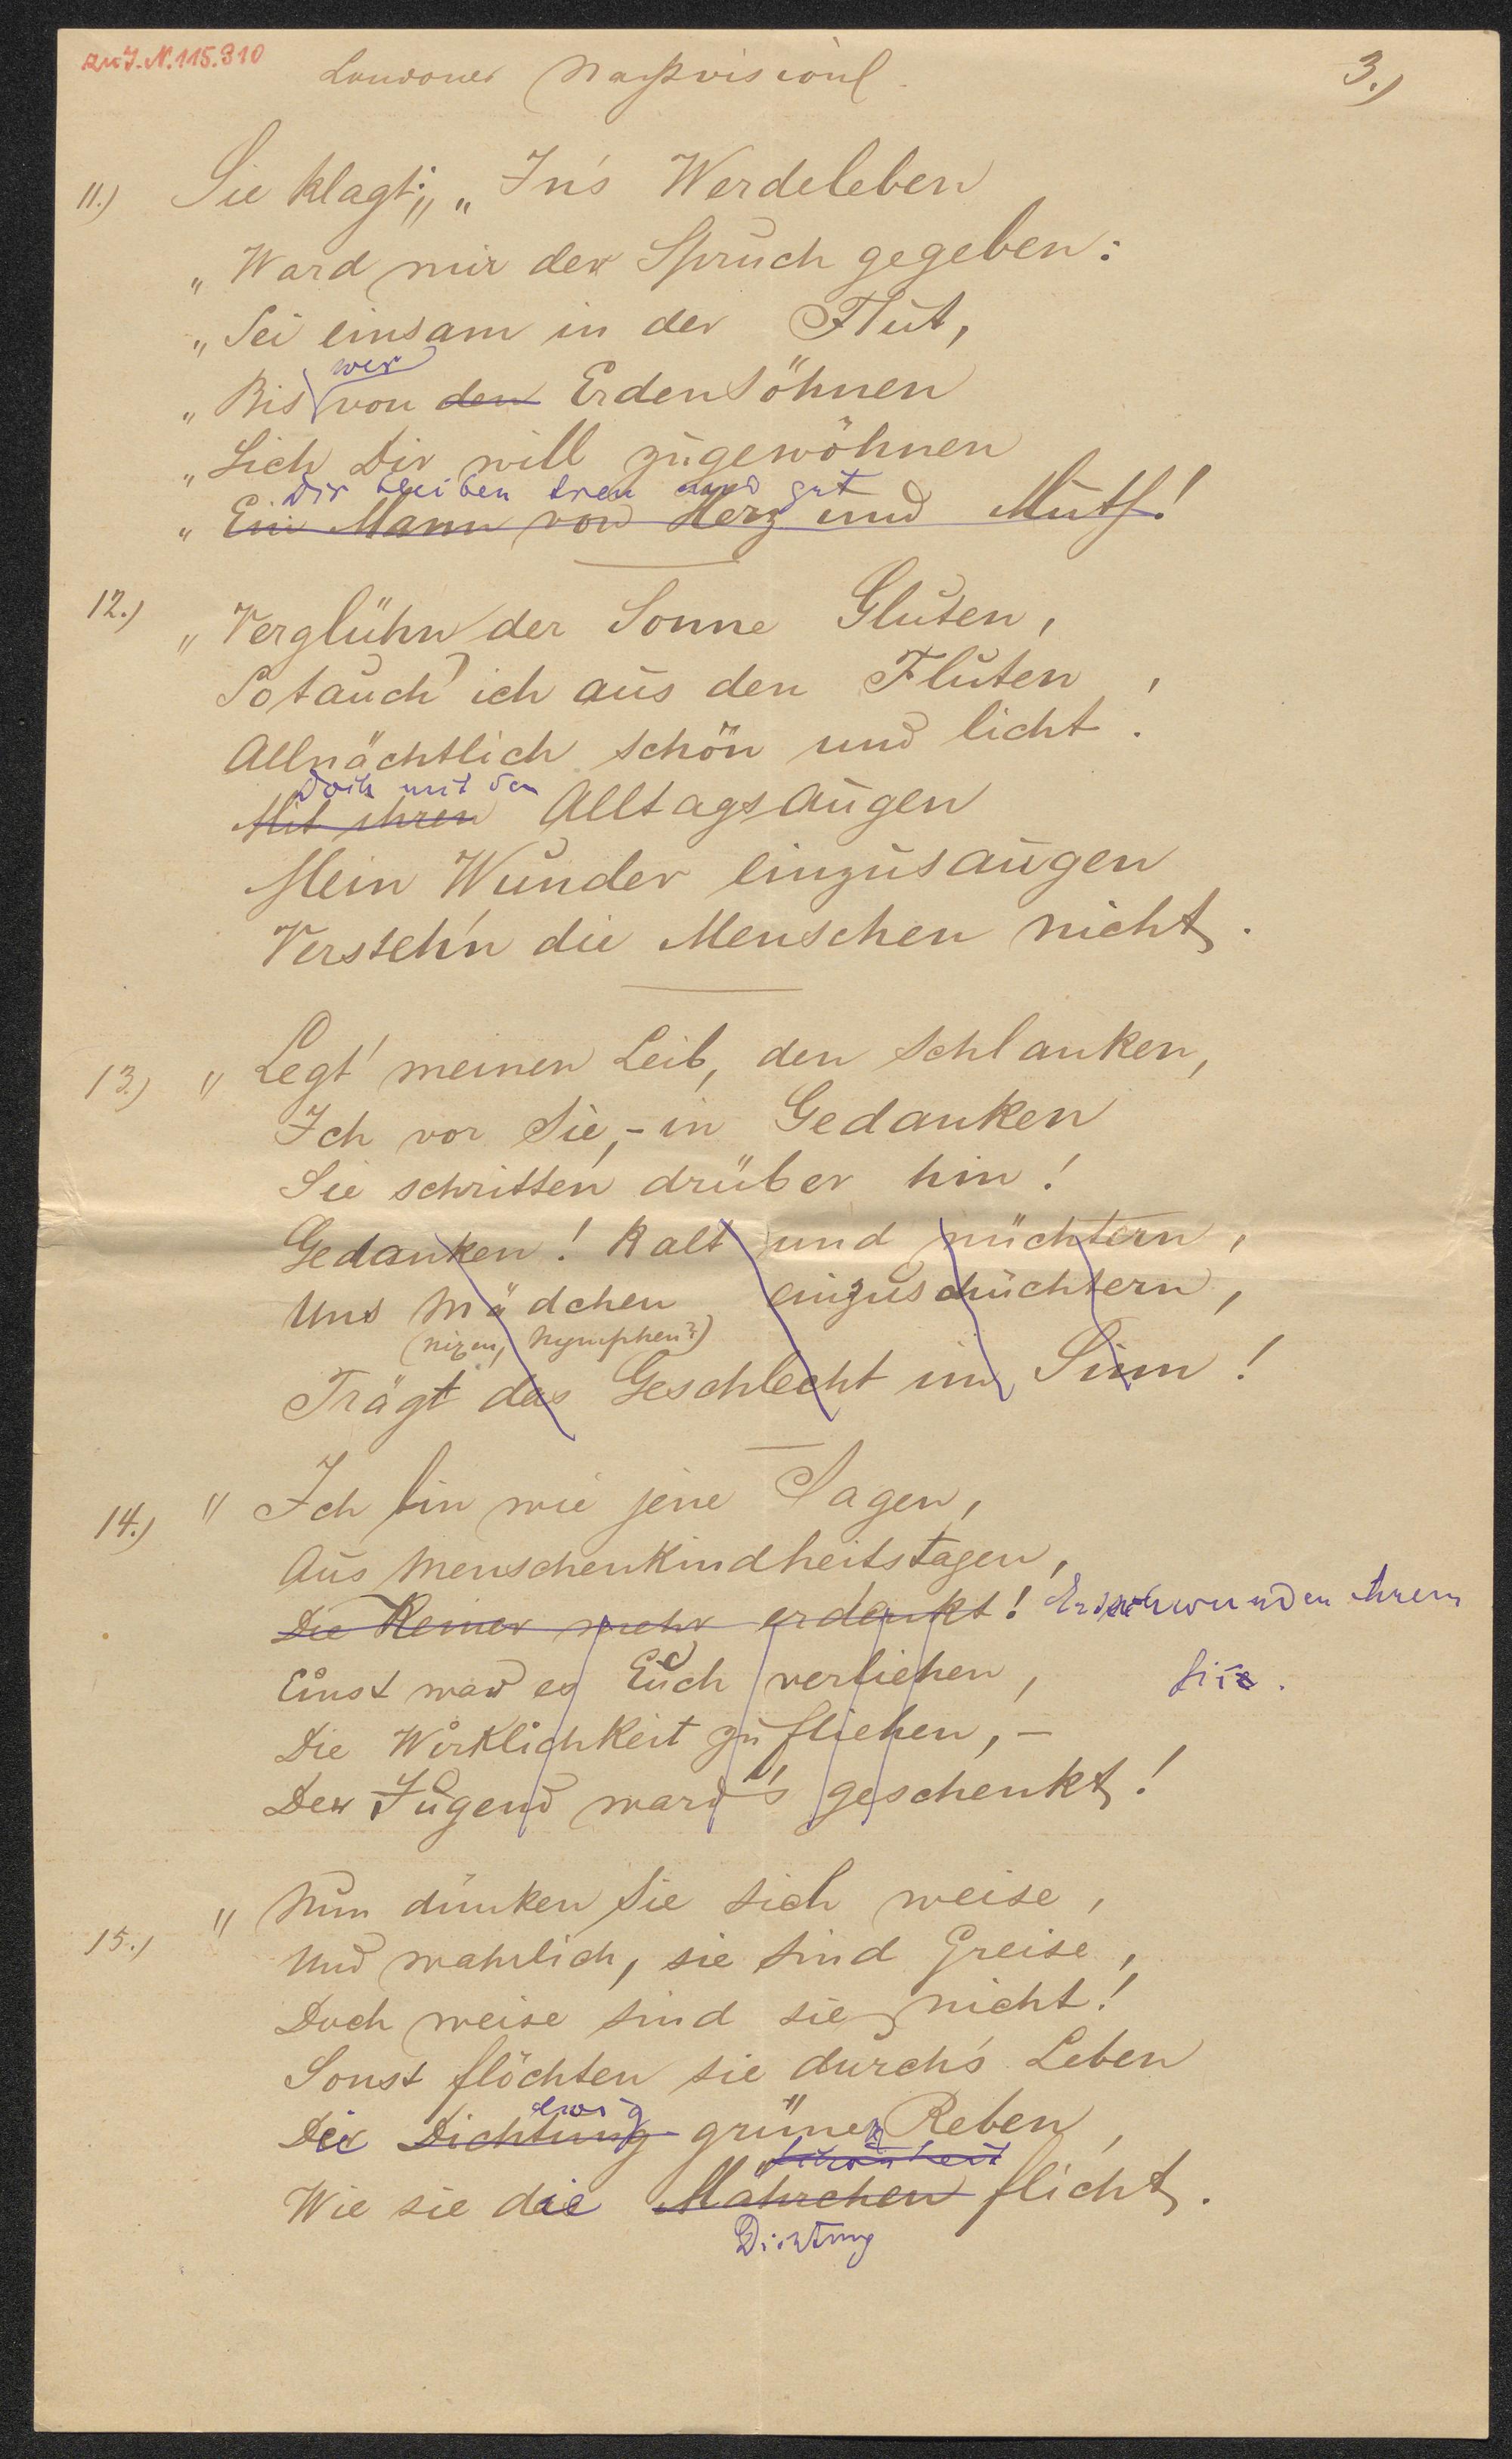 zu J.N. 115.310
3.)
11.) Sie klagt: „In's Werdeleben
„Ward mir der Spruch gegeben:
„Sei einsam in der Flut,
wer
„Bis von den Erdensöhnen
„Sich Dir will zugewöhnen
Dir bleiben treu und gut
„Ein Mann von Herz und Muth!
12.) „Verglühn der Sonne Gluten,
So tauch' ich aus den Fluten,
Allnächtlich schön und licht.
Doch mit den
Mit ihren Alltagsaugen
Mein Wunder einzusaugen
Versteh'n die Menschen nicht.
13.) „Legt' meinen Leib, den schlanken,
Ich vor Sie, - in Gedanken
Sie schritten drüber hin!
Gedanken! Kalt und nüchtern,
Uns Mädchen einzuschüchtern,
(Nixen, Nymphen?)
Trägt das Geschlecht im Sinn!
14.) „Ich bin wie jene Sagen,
Aus Menschenkindheitstagen,
Die Keiner mehr erdenkt! ihrem
Einst war es Euch verliehen,
Die Wirklichkeit zu fliehen, -
Der Jugend ward's geschenkt!
15.) „Nun dünken Sie sich weise,
Und wahrlich, sie sind Greise,
Doch weise sind sie nicht!
Sonst flöchten sie durch's Leben
ewig
Die Dichtung grünen Reben,
Schönheit
Wie sie die Mährchen flicht.
Dichtung